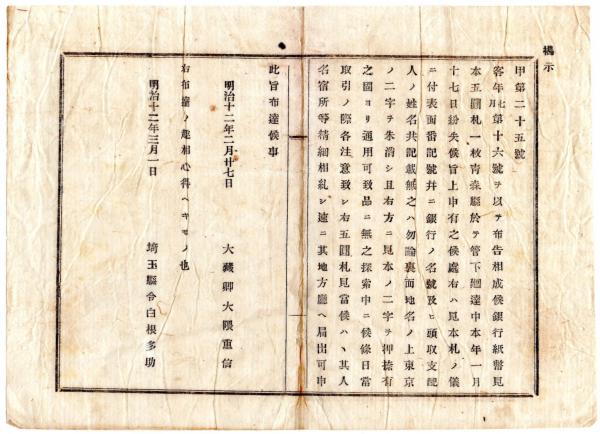 掲示
甲第二十五號
客年七月第十六號ヲ以テ布告相成候銀行紙幣見
本五圓札一枚靑森縣於テ管下廻達中本年一月
十七日紛失候旨上申有之候處右ハ見本札ノ儀
ニ付表面番記號幷ニ銀行ノ名號及ヒ頭取支配
人ノ姓名共記載無之ハ勿論裏面地名ノ上東京
ノ二字ヲ朱消シ且右方ニ見本ノ二字ヲ押捺有
之固ヨリ通用可致品ニ無之探索中ニ候條日常
取引ノ際各注意致シ右五圓札見當候ハヽ其人
名宿所等精細相糺シ速ニ其地方廳ヘ屆出可申
此旨布達候事
明治十二年二月廿七日 大藏卿大隈重信
右布達ノ趣相心得ヘキモノ也
明治十二年三月一日 埼玉縣令白根多助